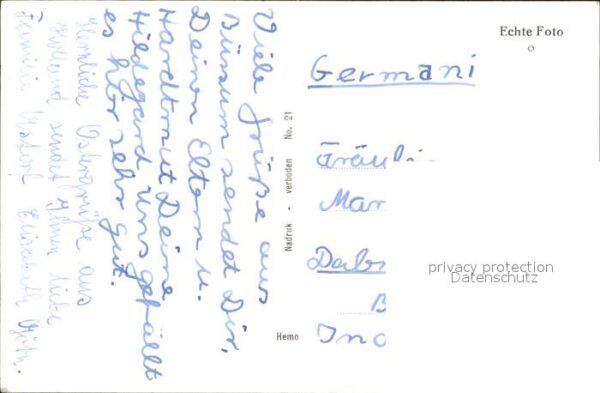 Viele Grüße aus
Büsum sendet Dir,
Deinen Eltern u.
Hardtmut Deine
Hildegard. Uns gefällt
es hier sehr gut.
Herzliche Ostergrüße aus
Holland sendet Ihnen liebe
Familie Elisabeth
Nadruk - verboden No. 21
Hemo
Echte Foto
Germani
Fräul
Mar
Dabr
B
Ind
privacy protection
Datenschutz